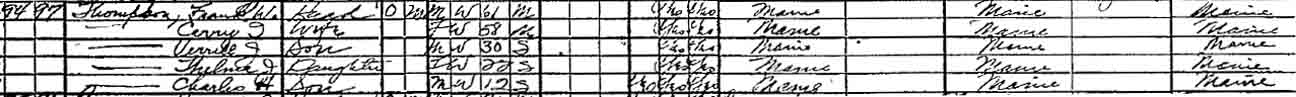 94 97 Thompson, Frank W. Head O M M W 61 M Yes Yes Maine Maine Maine
— Wife F W 58 M Yes Yes Maine Maine Maine
— Son M W 30 S Yes Yes Maine Maine Maine
— Thelma I Daughter F W S Yes Yes Maine Maine Maine
— Charles H Son M W 12 S Yes Yes Yes Maine Maine Maine